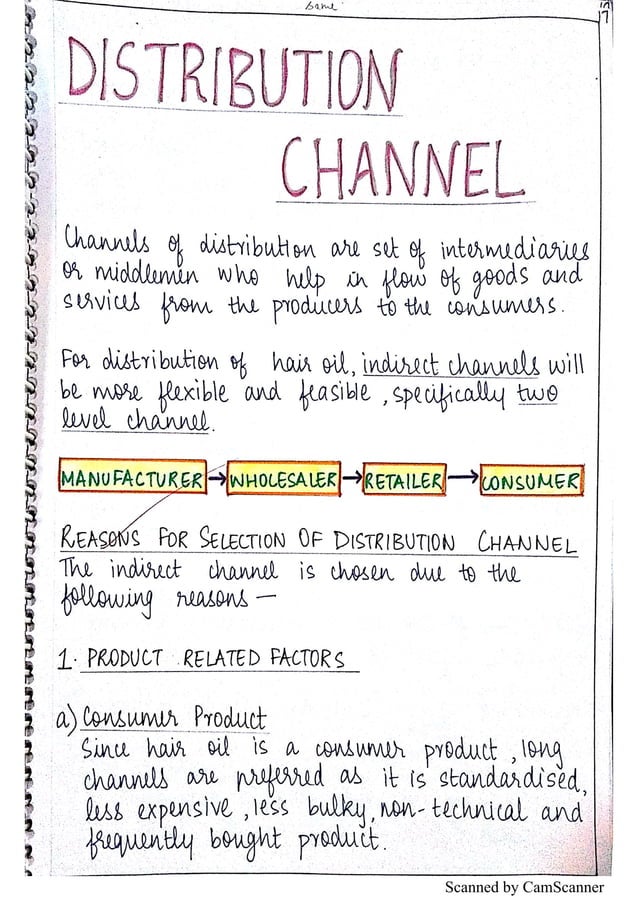 Same
17
DISTRIBUTION
CHANNEL
Channels of distribution are set of intermediaries
or middlemen who help in flow of goods and
services from the producers to the consumers.
For distribution of hair oil, indirect channels will
be more flexible and feasible, specifically two
level channel.
MANUFACTURER → WHOLESALER → RETAILER → CONSUMER
REASONS FOR SELECTION OF DISTRIBUTION CHANNEL
The indirect channel is chosen due to the
following reasons —
1. PRODUCT RELATED FACTORS
a) Consumer Product
Since hair oil is a consumer product, long
channels are preferred as it is standardised,
less expensive, less bulky, non-technical and
frequently bought product.
Scanned by CamScanner